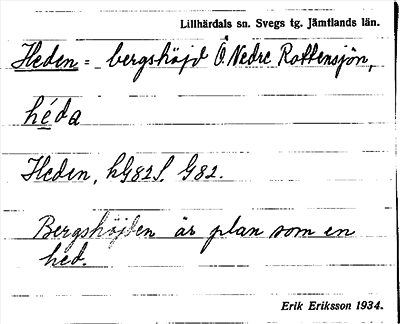 Lillhärdals sn. Svegs tg. Jämtlands län.
Heden = bergshöjd Ö. Nedre Rottensjön,
héda
Heden, hG82S. G82.
Bergshöjden är plan som en
hed.
Erik Eriksson 1934.